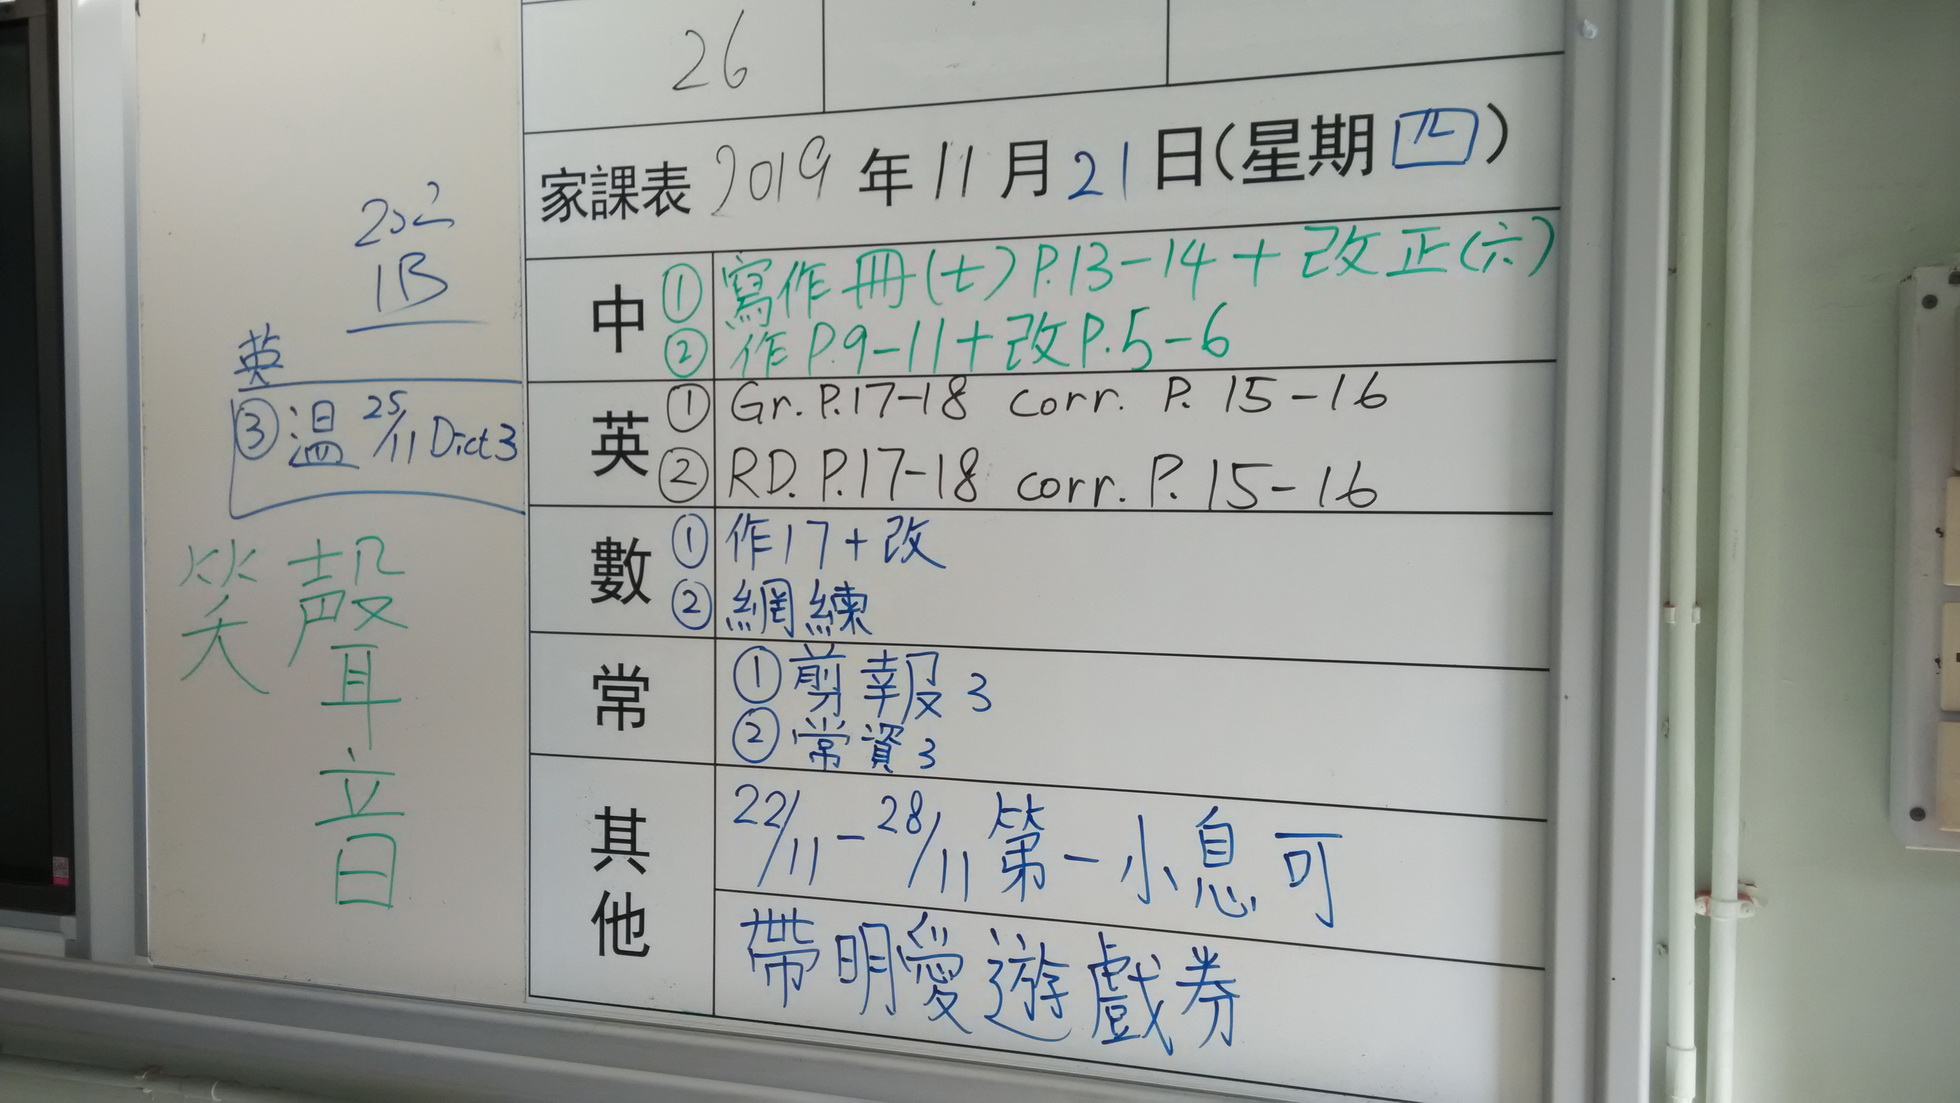 26
家課表 2019 年 11 月 21 日(星期 四)
中 ① 寫作冊(七) P.13-14 + 改正(六)
② 作 P.9-11 + 改 P.5-6
英 ① Gr. P.17-18 corr. P. 15-16
② RD. P.17-18 corr. P. 15-16
數 ① 作17+改
② 網練
常 ① 剪報 3
② 常資 3
其他 22/11 - 28/11 第一小息可
帶明愛遊戲券
1B
英
③ 溫 25/11 Dict 3
聲音
笑